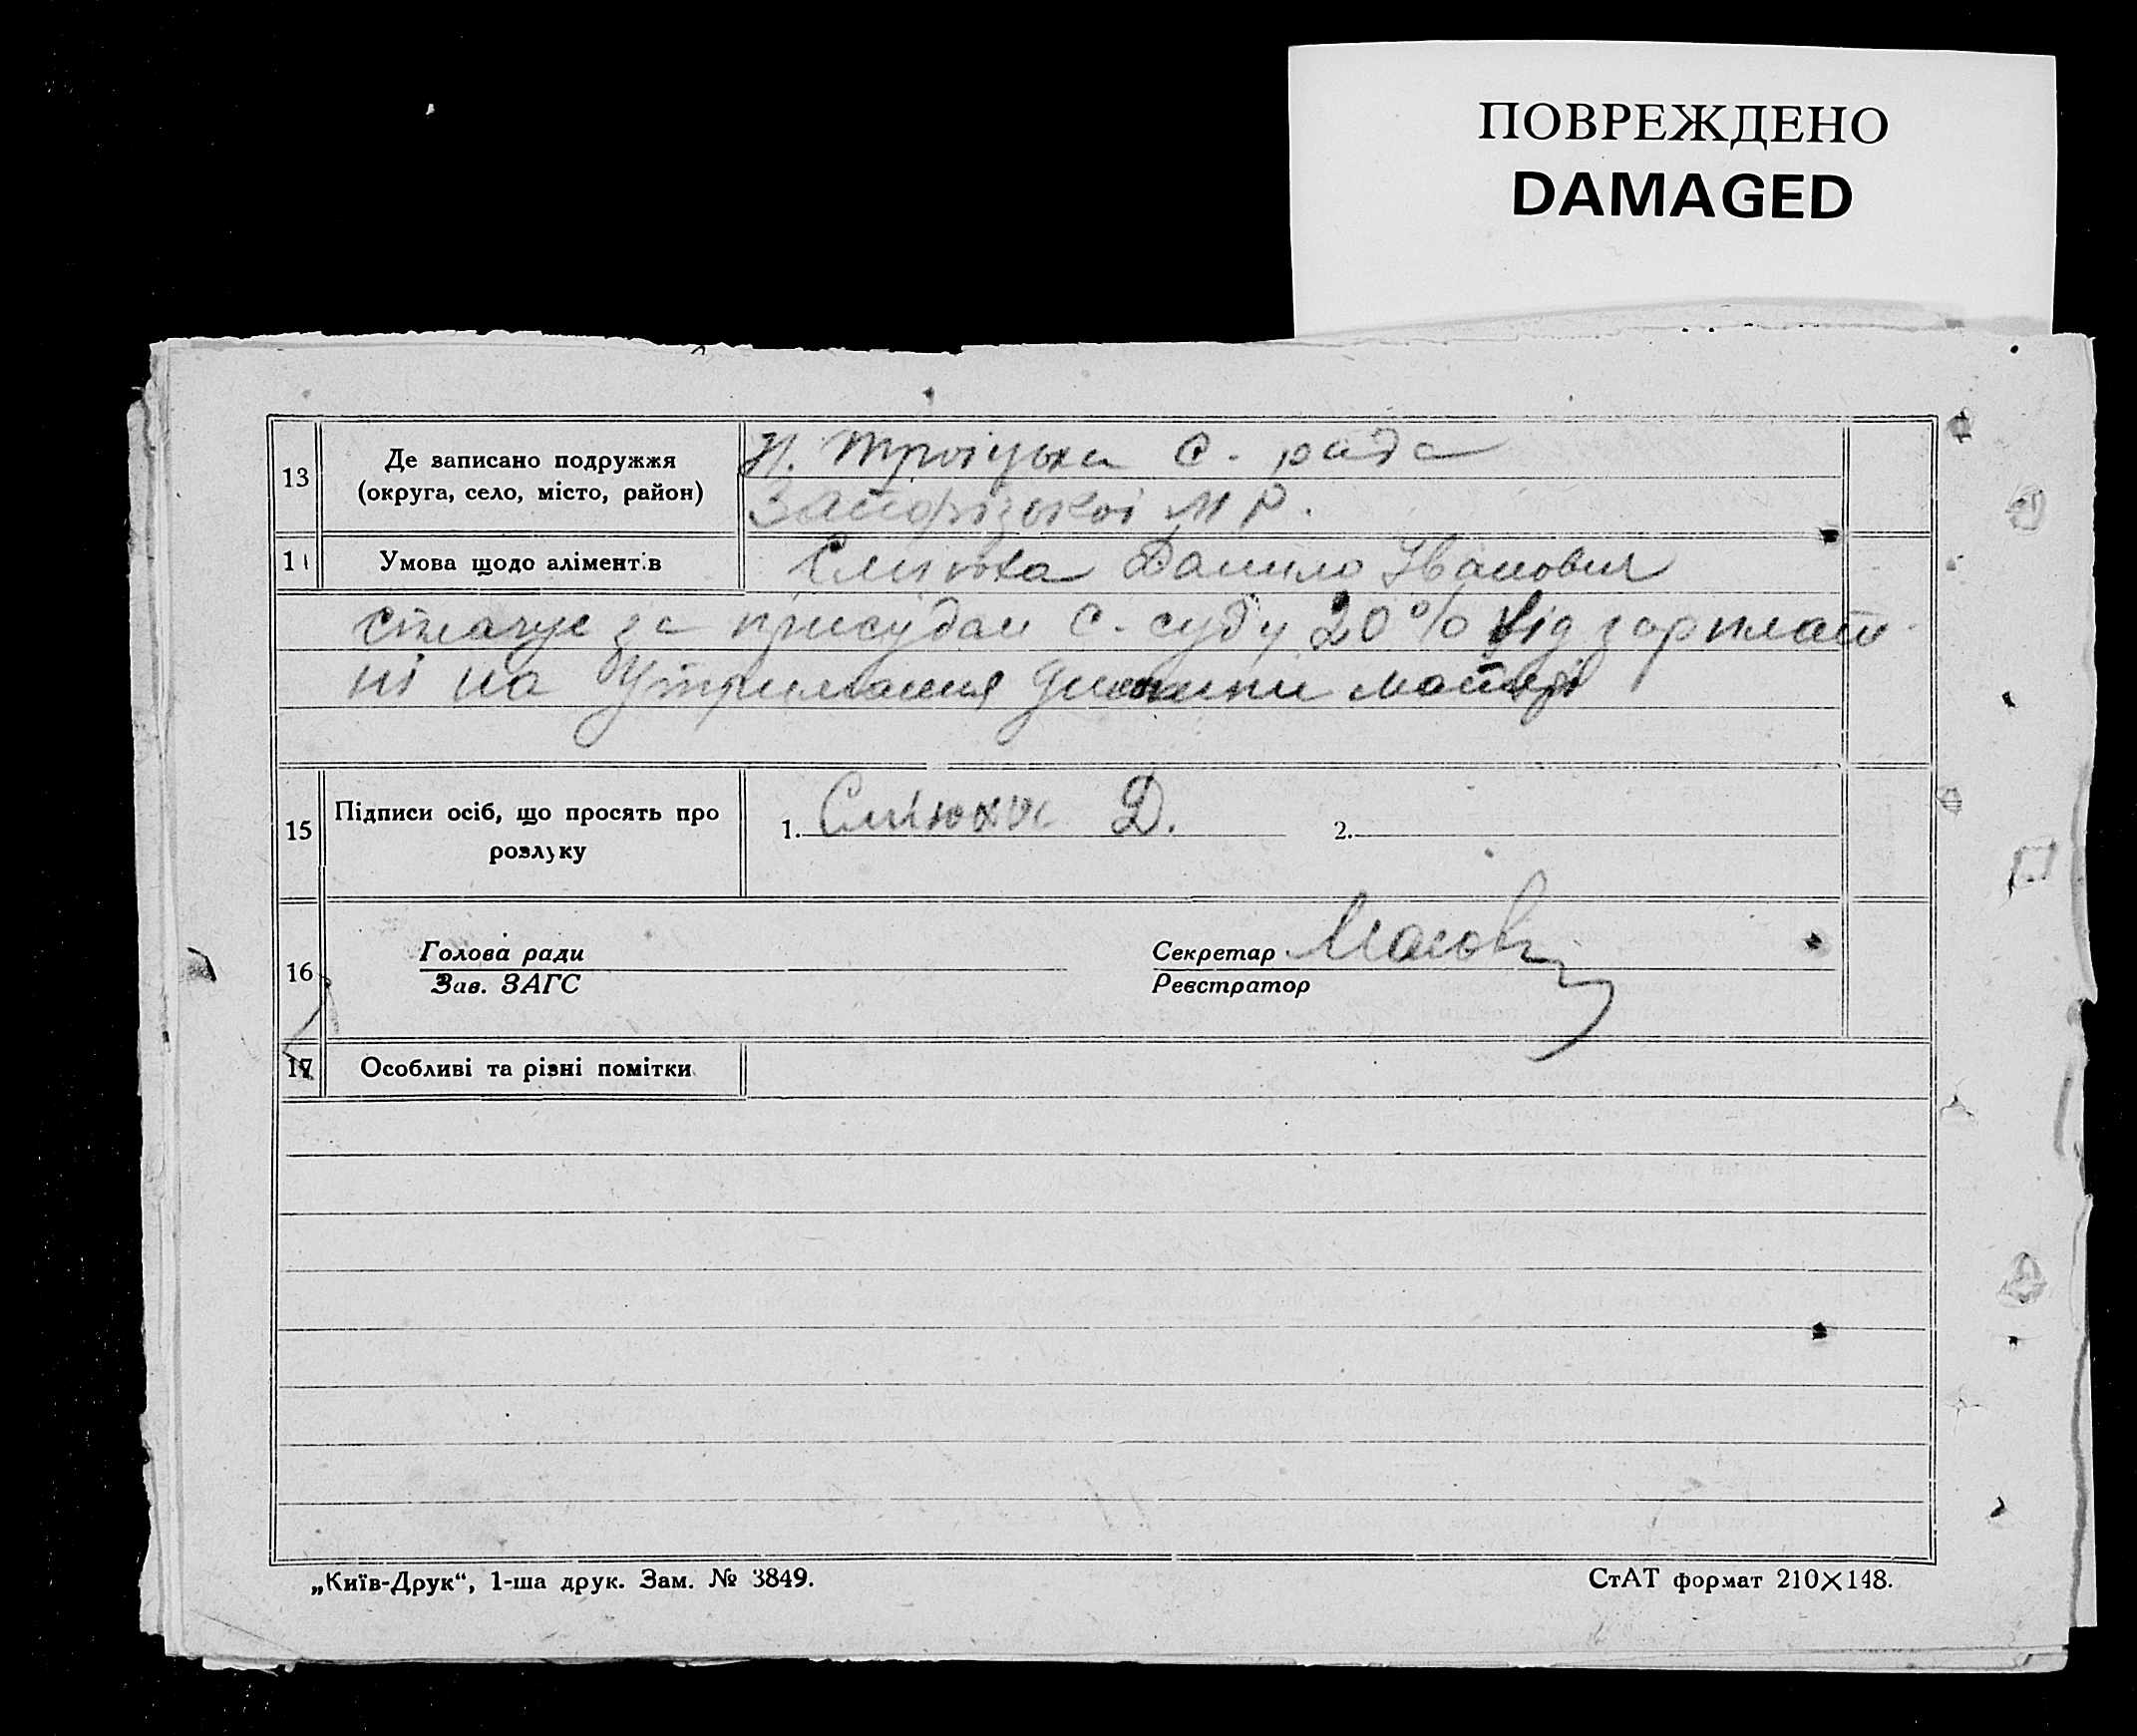 ПОВРЕЖДЕНО
DAMAGED
13
Де записано подружжя
(округа, село, місто, район)
Н. Троіцька с. рада
Запорізької М Р.
Умова щодо аліментів
Данило Іванович
сплачує за присудом с. суду 20% від зарплат
ні на утримання дитини матері
15
Підписи осіб, що просять про
розлуку
1. Д.
2.
16
Голова ради
Зав. ЗАГС
Секретар
Реєстратор
17
Особливі та різні помітки
„Київ-Друк“, 1-ша друк. Зам. № 3849.
СтАТ формат 210×148.